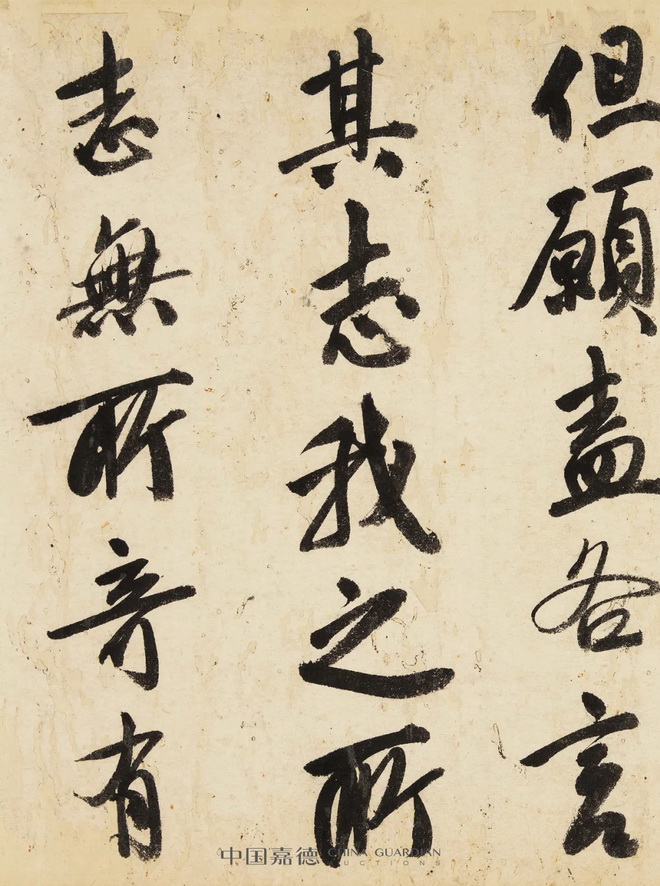 但願盡各言
其志我之所
志無所奇有
中国嘉德 CHINA GUARDIAN
AUCTIONS